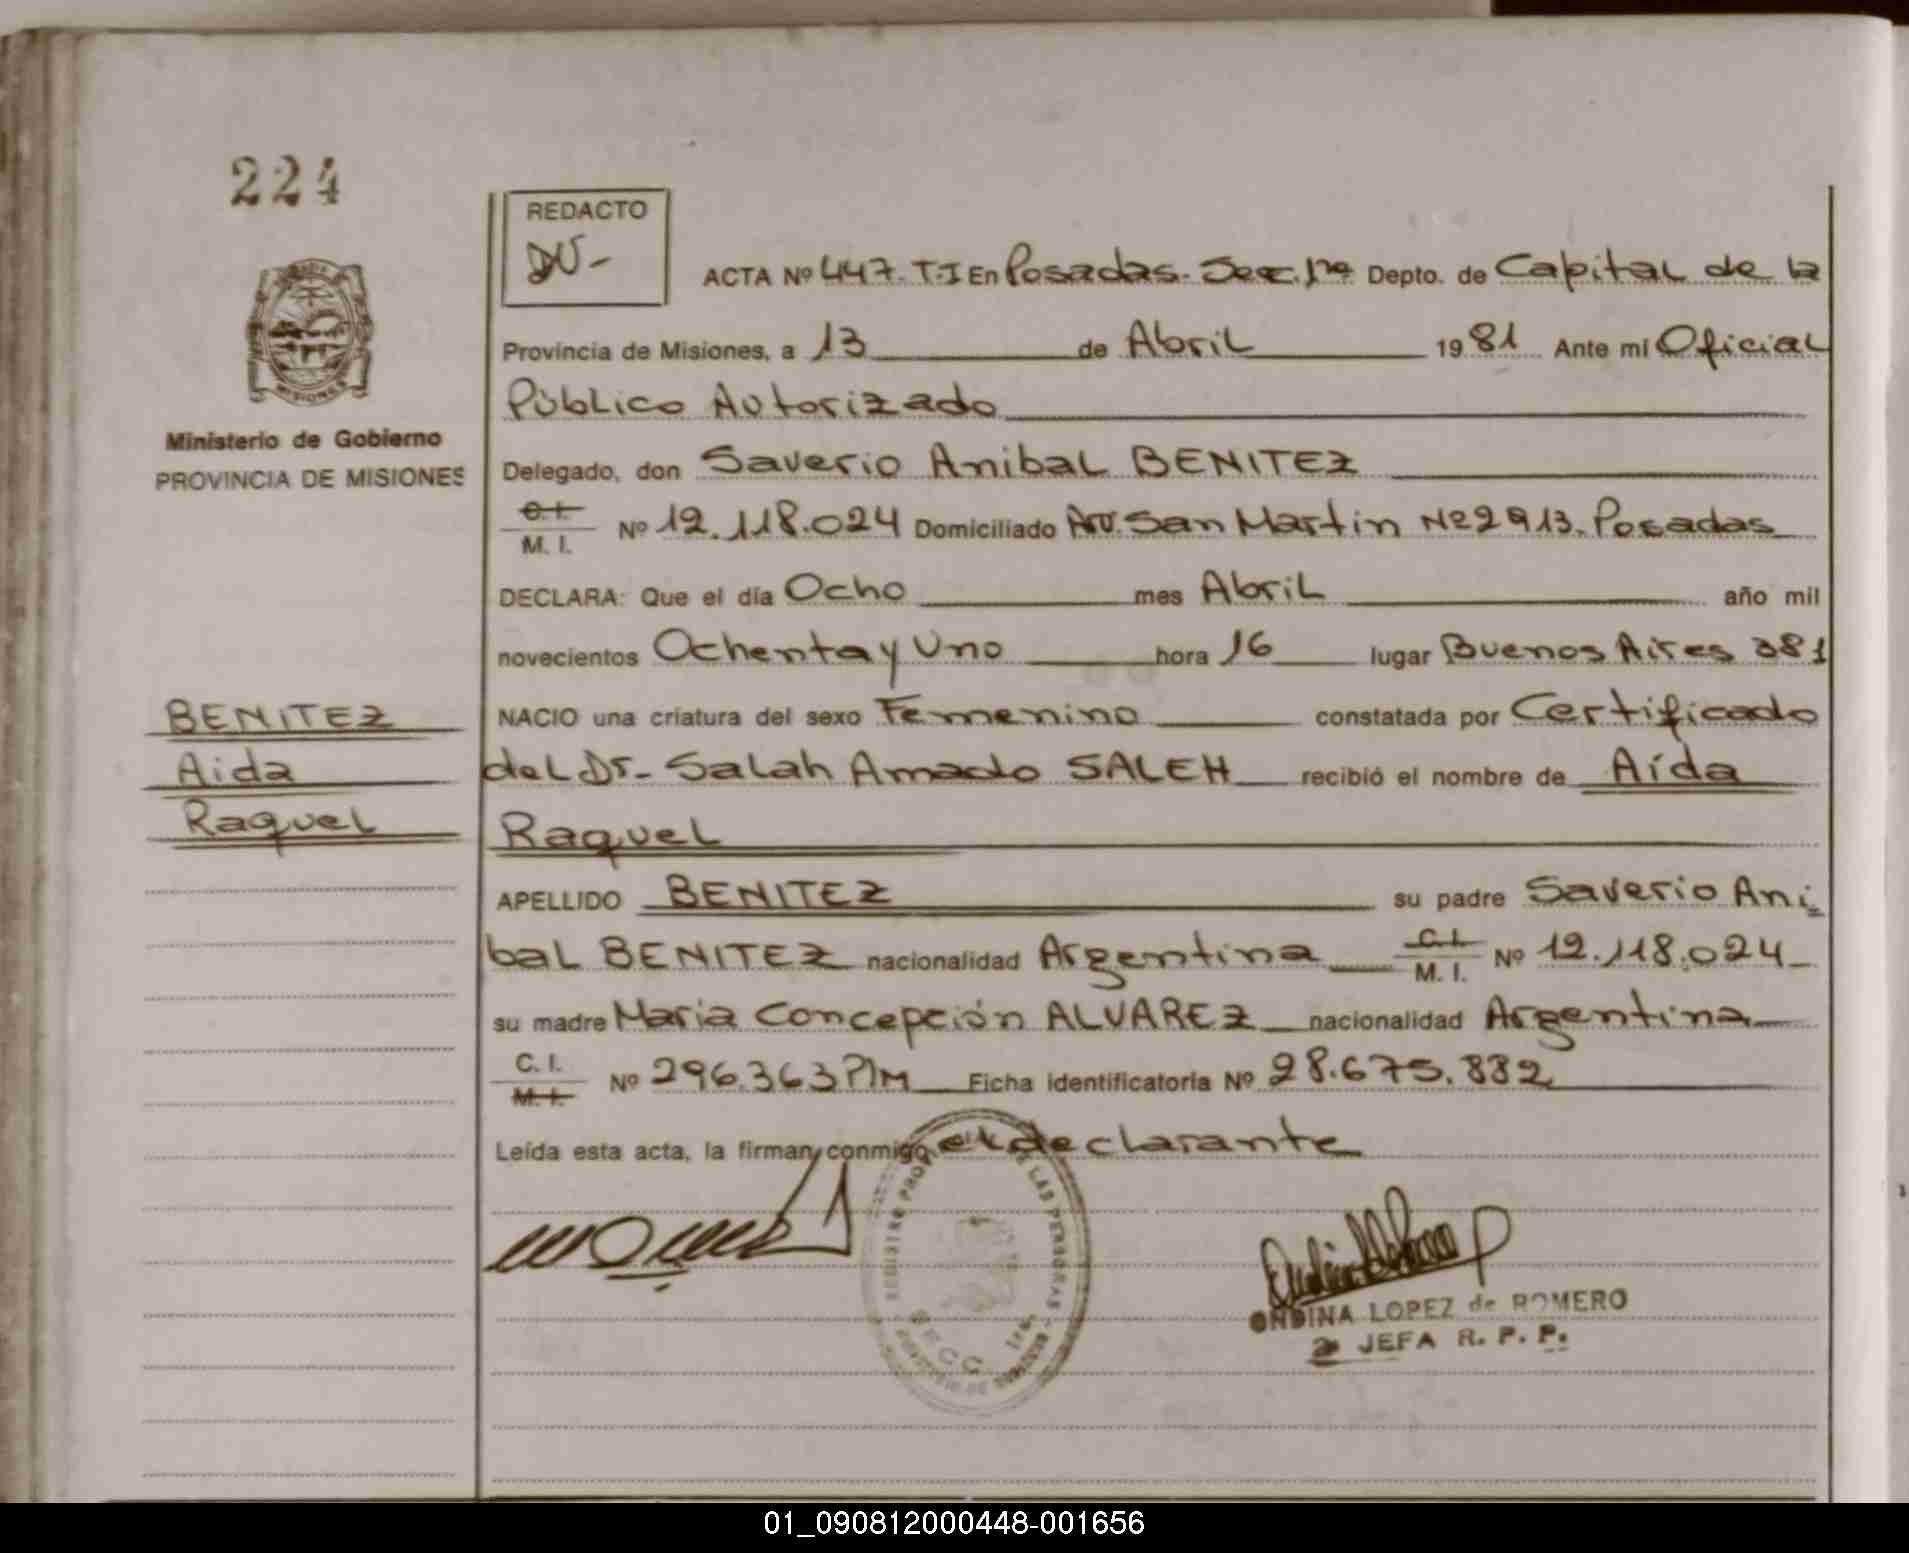 224
REDACTO
DV-
ACTA Nº 447. T-I En Posadas. Sec. 1ra Depto. de Capital de la
Provincia de Misiones, a 13 de Abril 1981 Ante mí Oficial
Público Autorizado
Ministerio de Gobierno
PROVINCIA DE MISIONES
Delegado, don Saverio Anibal BENITEZ
C. I.
M. I. Nº 12.118.024 Domiciliado Av. San Martin Nº 2913. Posadas
DECLARA: Que el día Ocho mes Abril año mil
novecientos Ochenta y Uno hora 16 lugar Buenos Aires 381
BENITEZ
Aida
Raquel
NACIO una criatura del sexo Femenino constatada por Certificado
del Dr. Salah Amado SALEH recibió el nombre de Aída
Raquel
APELLIDO BENITEZ su padre Saverio Ani
bal BENITEZ nacionalidad Argentina C. I.
M. I. Nº 12.118.024
su madre Maria Concepción ALVAREZ nacionalidad Argentina
C. I.
M. I. Nº 296.363 P/M Ficha identificatoria Nº 28.675.882
Leída esta acta, la firman conmigo el declarante
ONDINA LOPEZ de ROMERO
2a JEFA R. P. P.
MISIONES
01_090812000448-001656